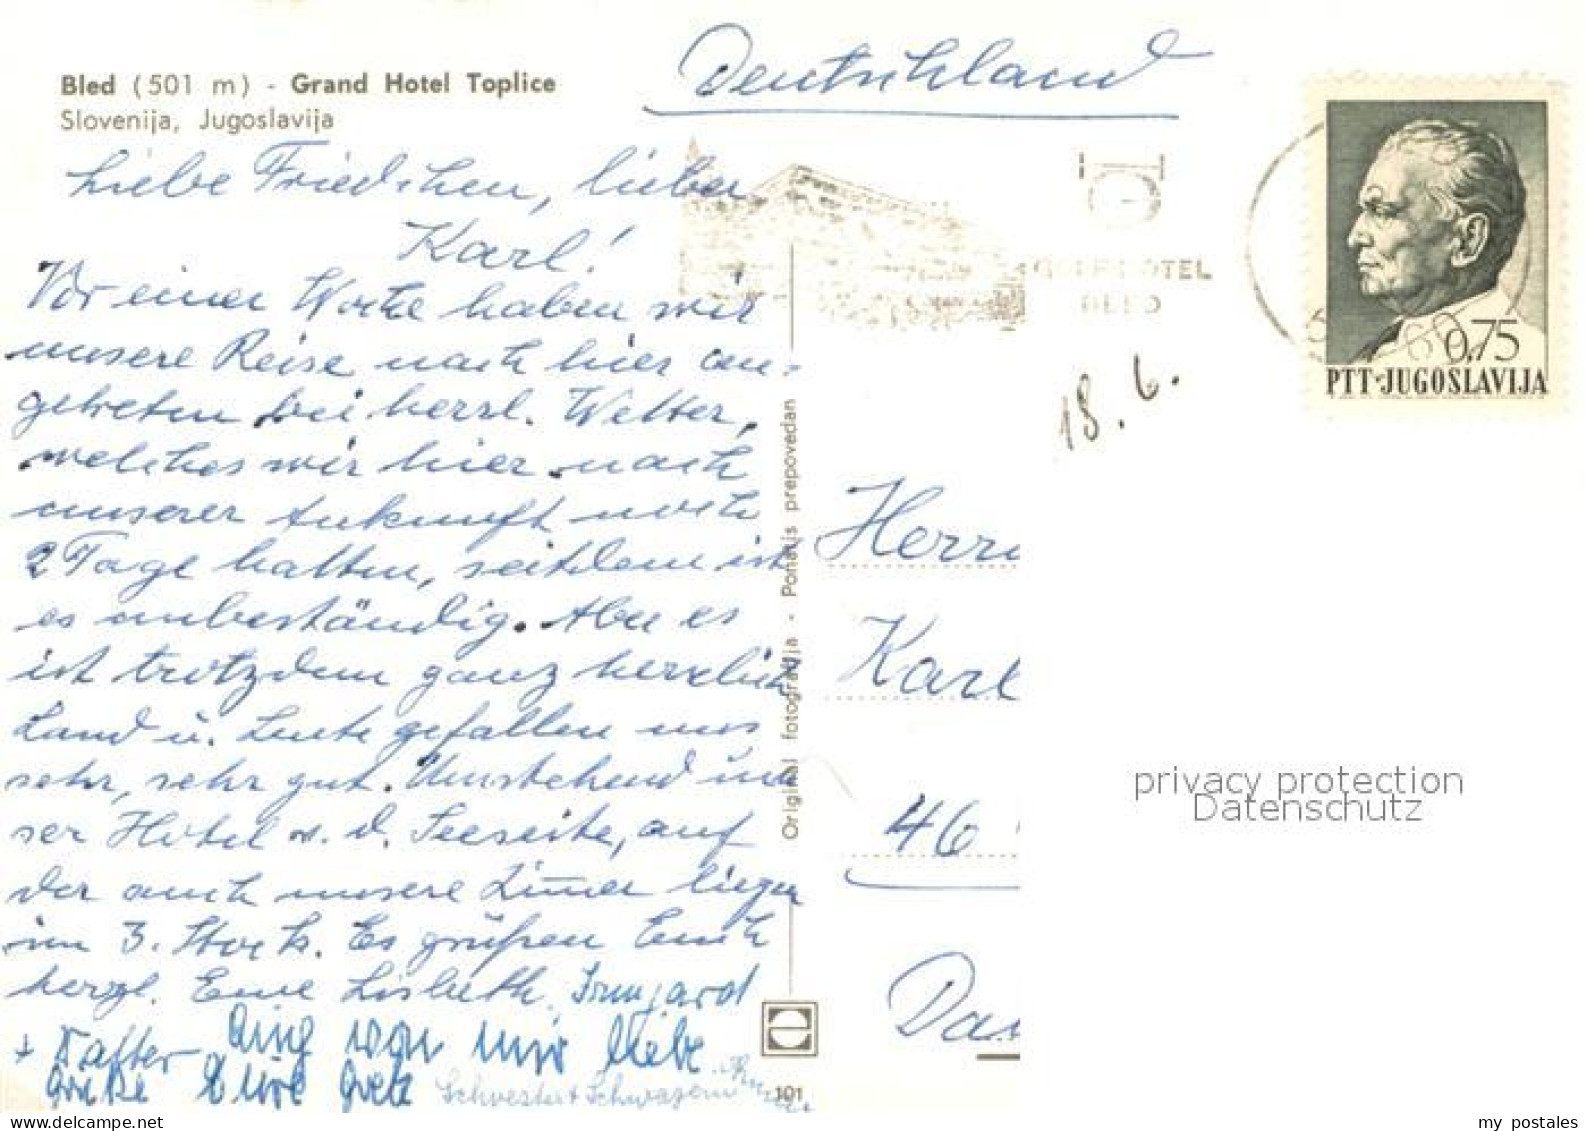 Bled (501 m) - Grand Hotel Toplice
Slovenija, Jugoslavija
Deutschland
Liebe Friedchen, lieber
Karl!
Vor einer Woche haben wir
unsere Reise nach hier an=
getreten bei herrl. Wetter,
welches wir hier nach
unserer Ankunft noch
2 Tage hatten, seitdem ist
es unbeständig. Aber es
ist trotzdem ganz herrlich
Land u. Leute gefallen uns
sehr, sehr gut. Umstehend un
ser Hotel v. d. Seeseite, auf
der auch unsere Zimmer liegen
im 3. Stock. Es grüßen Euch
herzl. Eure Lisbeth, Irmgard
+ Auch von mir liebe
Grüße Eure
Schwester + Schwägerin
Original fotografija - Ponatis prepovedan
101
GOLF HOTEL
BLED
18.6.
0,75
PTT-JUGOSLAVIJA
Herrn
Karl
46
Da
privacy protection
Datenschutz
my postales